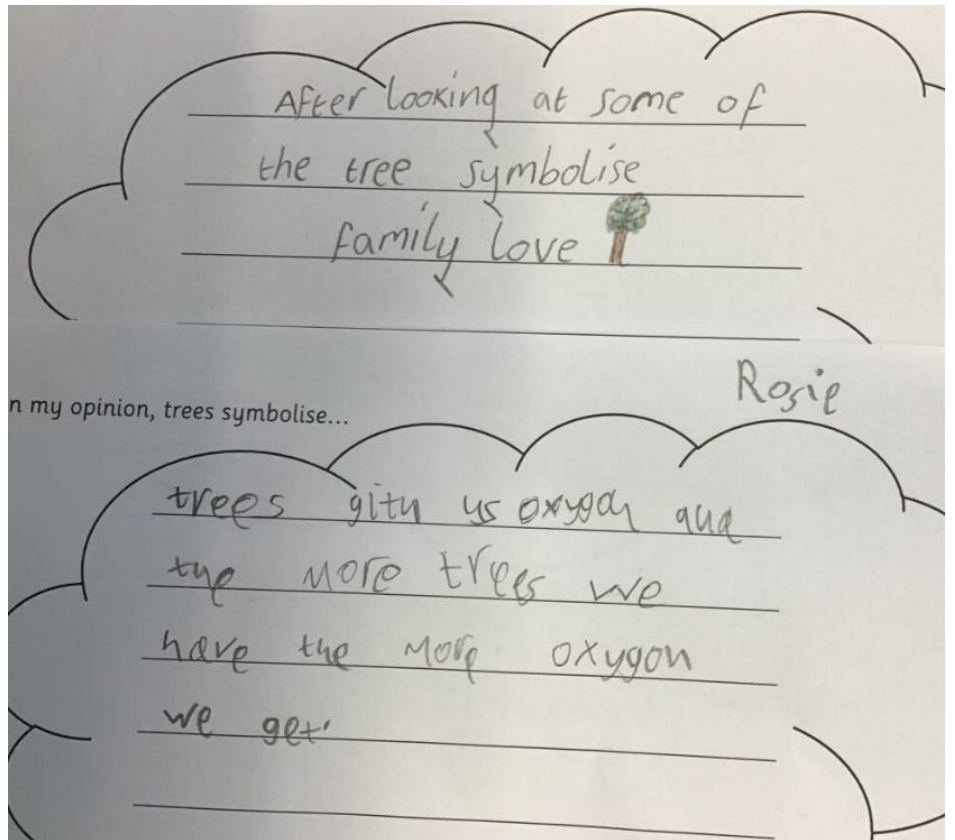 After looking at some of
the tree symbolise
family love
Rosie
n my opinion, trees symbolise...
trees gith us oxygon and
the more trees we
have the more oxygon
we get